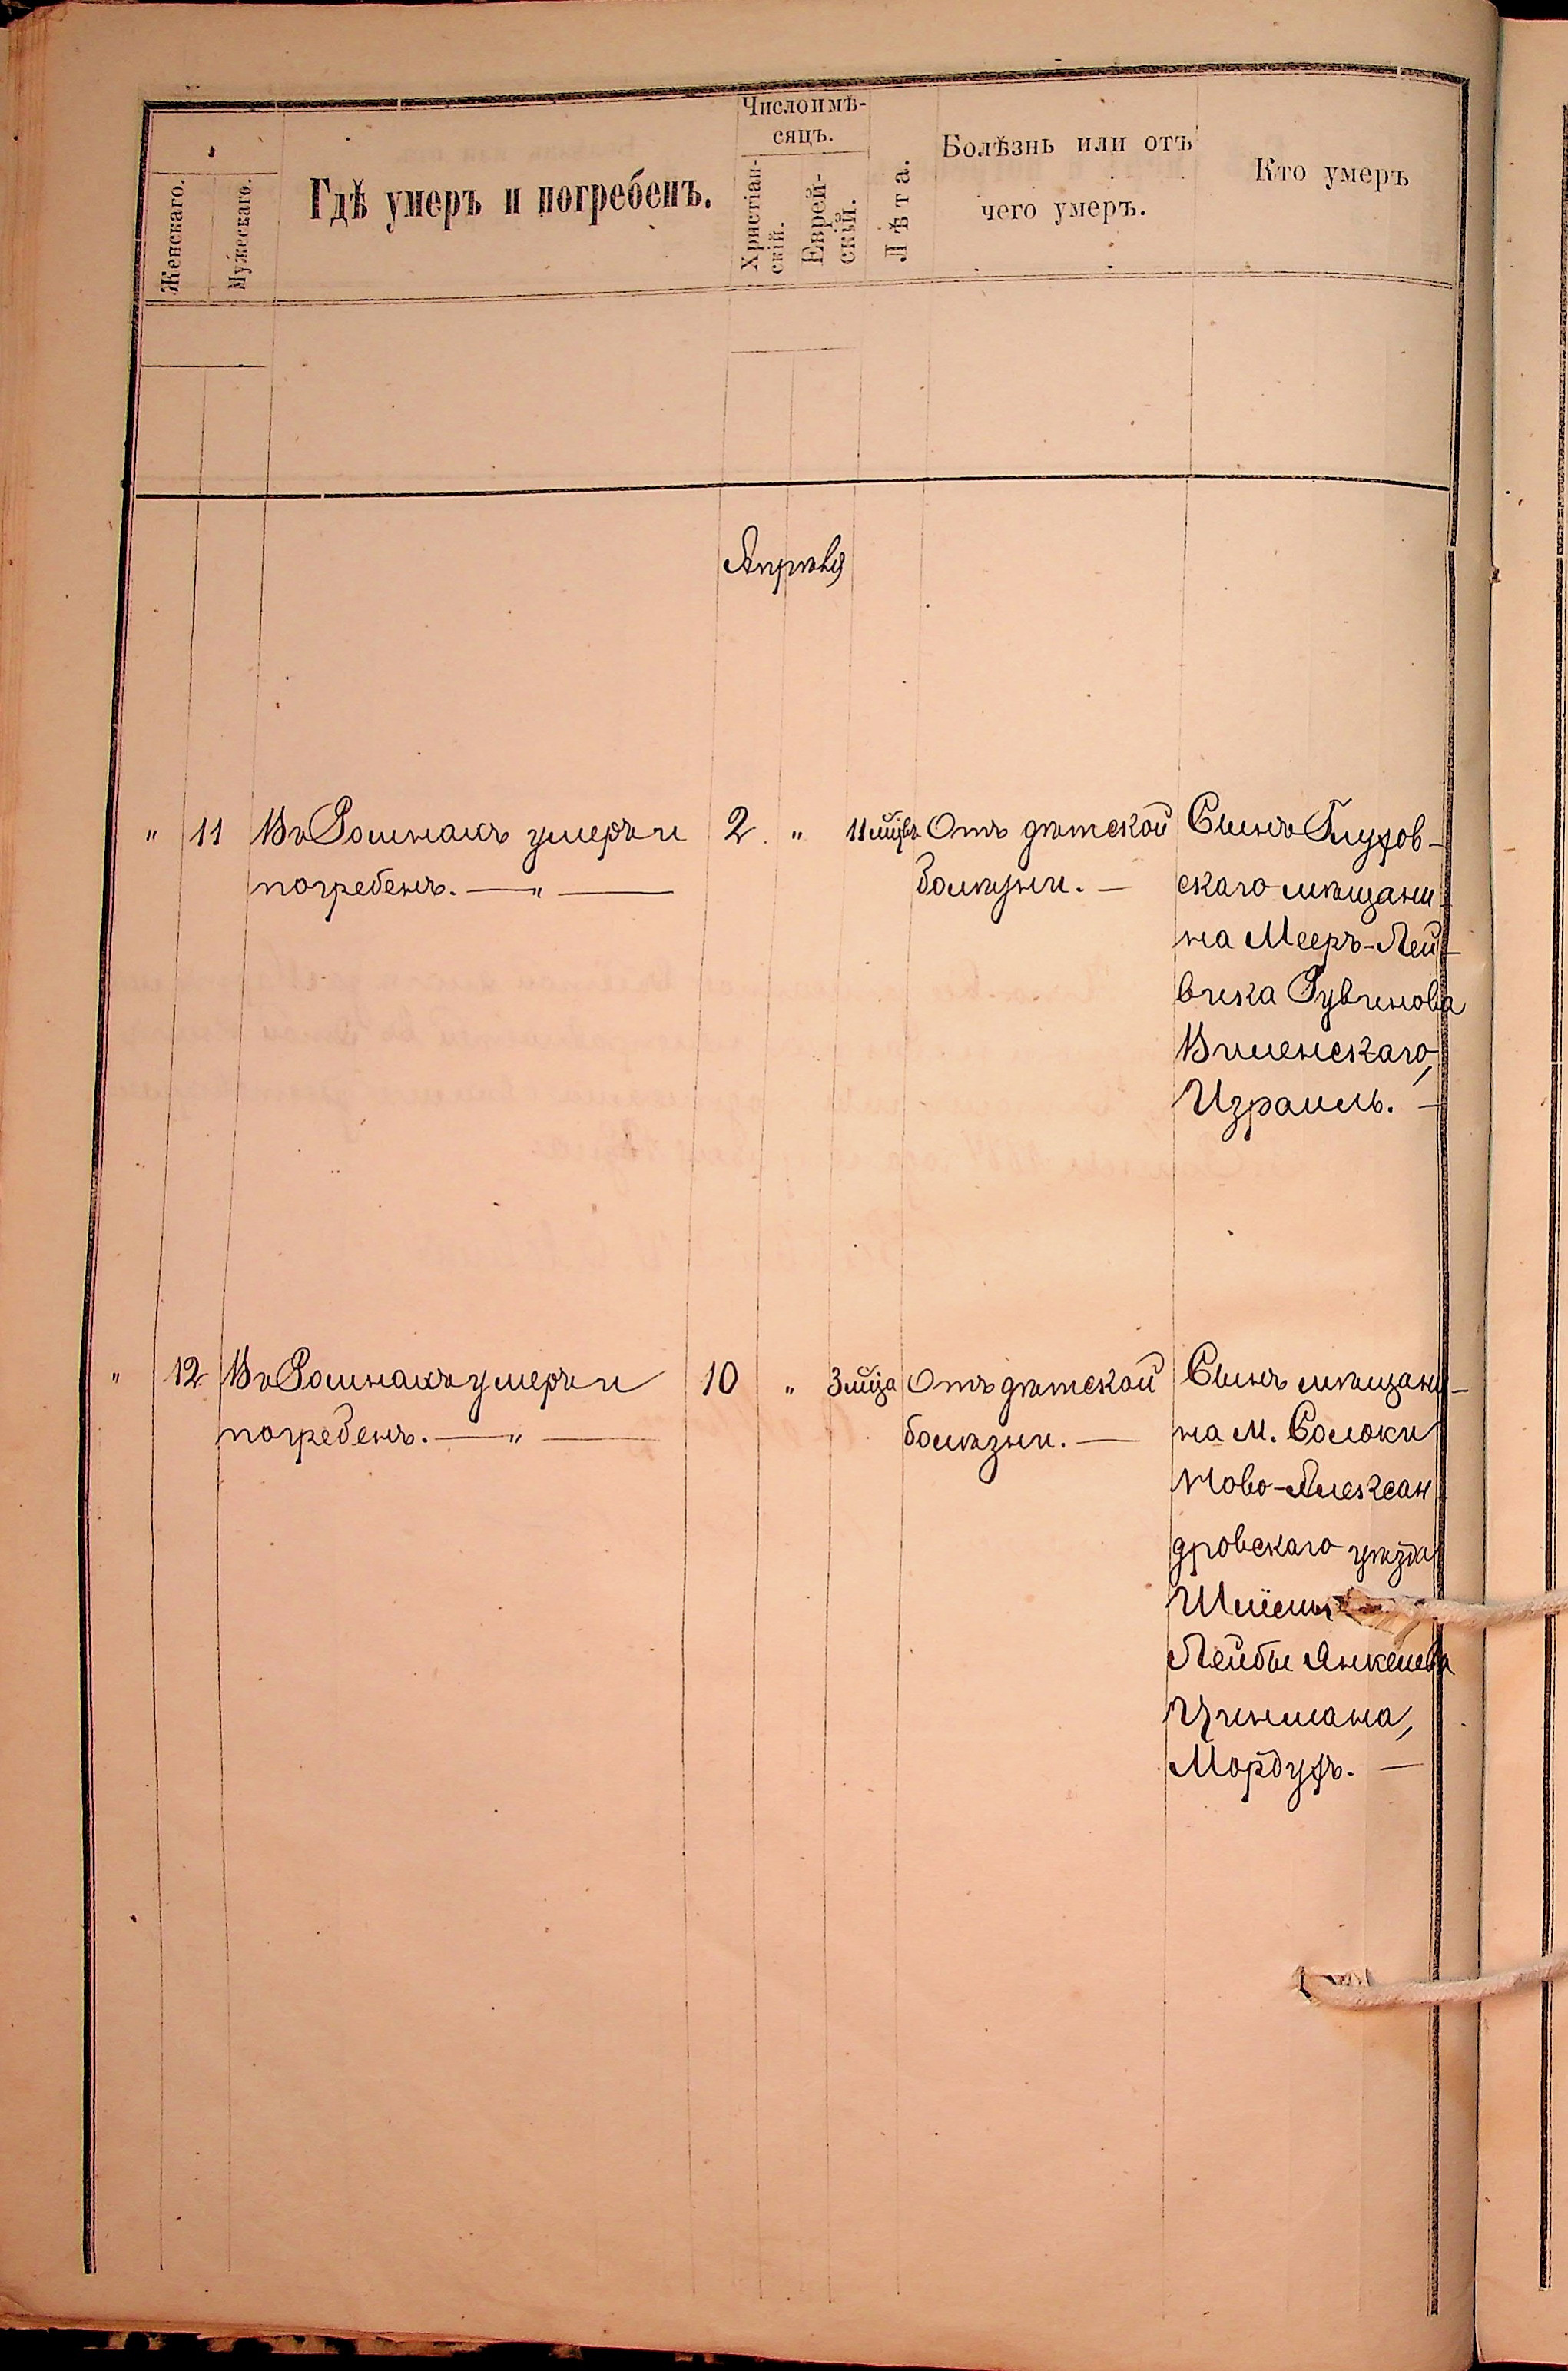 Женскаго.
Мужескаго.
Гдѣ умеръ и погребенъ.
Число и мѣ-
сяцъ.
Христіан-
скій.
Еврей-
скій.
Лѣта.
Болѣзнь или отъ
чего умеръ.
Кто умеръ
Апрѣля
" 11 Въ Ромнахъ умеръ и
погребенъ. — " —
2. "
11 мцвъ
Отъ дѣтской
болѣзни. —
Сынъ Глухов-
скаго мѣщани-
на Мееръ-Лей-
вика Рувинова
Виленскаго,
Израиль. —
" 12 Въ Ромнахъ умеръ и
погребенъ. — " —
10 "
3 мца
Отъ дѣтской
болѣзни. —
Сынъ мѣщани-
на м. Солоки
Ново-Алексан
дровскаго уѣзда
Лейбы Янкелева
Цинмана,
Мордухъ. —